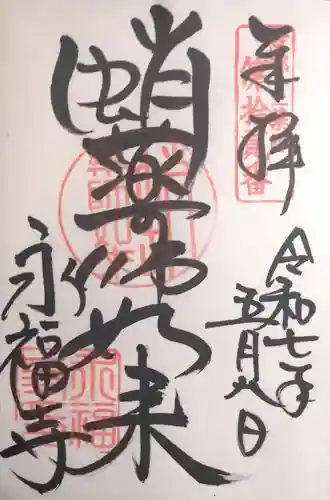 奉拝
令和七年
五月八日
蛸薬師如来
永福寺